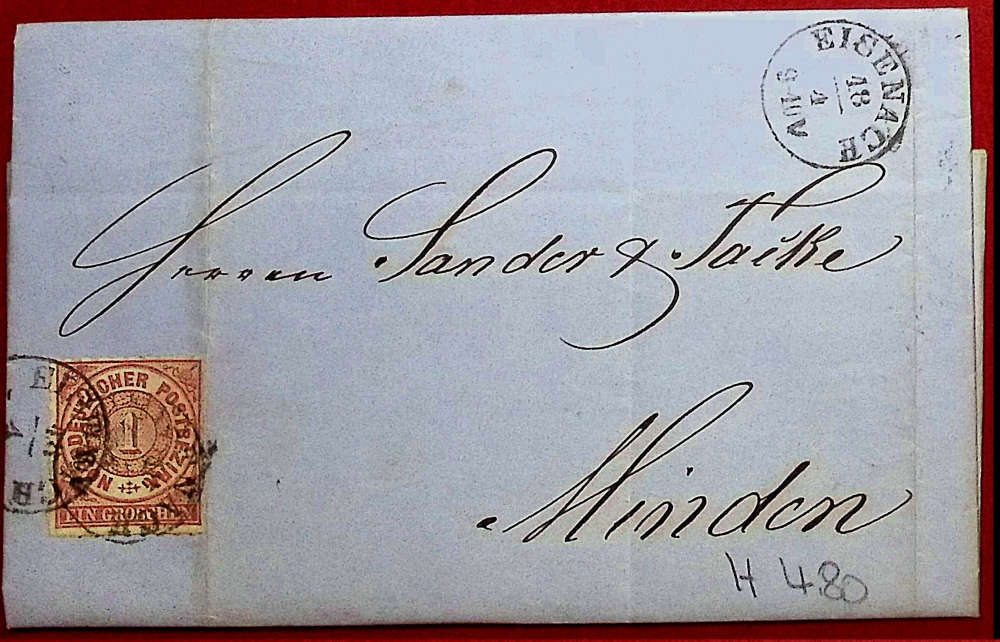 EISENACH
18
4
6-7 N
Herren Sander & Tacke
NORDDEUTSCHER POSTBEZIRK
1
EIN GROSCHEN
Minden
H 4.80